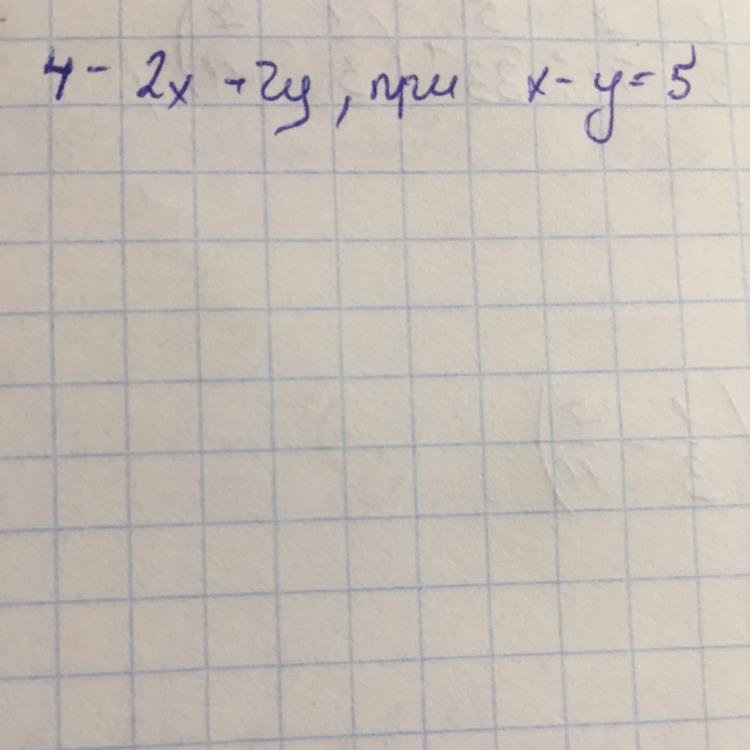 4 - 2x + 2y, при x - y = 5